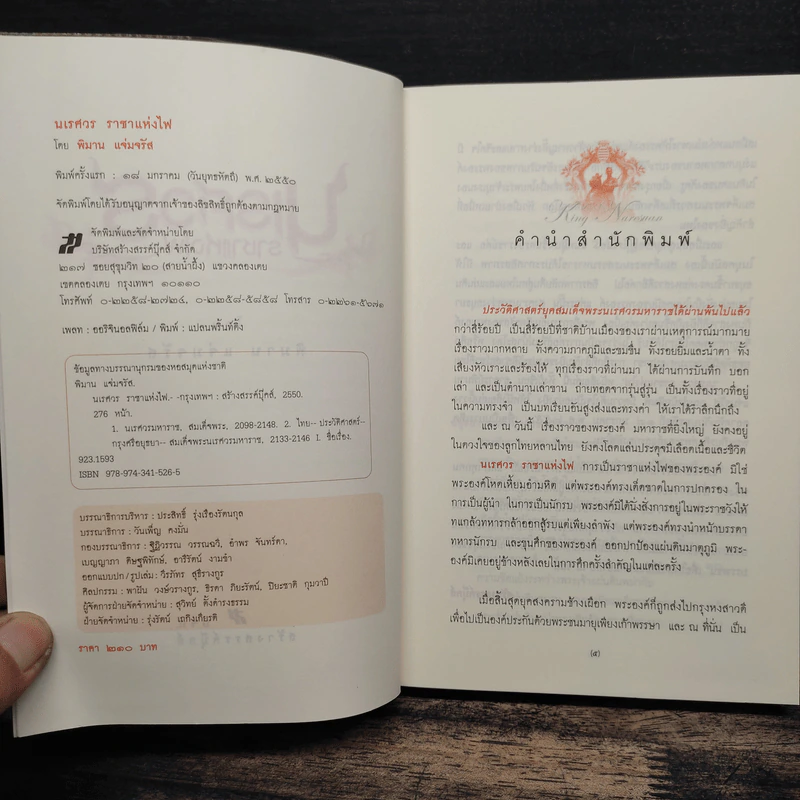 นเรศวร ราชาแห่งไฟ
โดย พิมาน แจ่มจรัส
พิมพ์ครั้งแรก : ๑๘ มกราคม (วันยุทธหัตถี) พ.ศ. ๒๕๕๐
จัดพิมพ์โดยได้รับอนุญาตจากเจ้าของลิขสิทธิ์ถูกต้องตามกฎหมาย
จัดพิมพ์และจัดจำหน่ายโดย
บริษัทสร้างสรรค์บุ๊คส์ จำกัด
๒๑๗ ซอยสุขุมวิท ๒๐ (สายน้ำผึ้ง) แขวงคลองเตย
เขตคลองเตย กรุงเทพฯ ๑๐๑๑๐
โทรศัพท์ ๐-๒๒๕๘-๒๗๒๔, ๐-๒๒๕๘-๕๘๕๘ โทรสาร ๐-๒๒๖๑-๕๖๗๑
เพลท : ออริจินอลฟิล์ม / พิมพ์ : แปลนพริ้นท์ติ้ง
ข้อมูลทางบรรณานุกรมของหอสมุดแห่งชาติ
พิมาน แจ่มจรัส.
นเรศวร ราชาแห่งไฟ.- -กรุงเทพฯ : สร้างสรรค์บุ๊คส์, 2550.
276 หน้า.
1. นเรศวรมหาราช, สมเด็จพระ, 2098-2148. 2. ไทย-- ประวัติศาสตร์--
กรุงศรีอยุธยา-- สมเด็จพระนเรศวรมหาราช, 2133-2146 I. ชื่อเรื่อง.
923.1593
ISBN 978-974-341-526-5
บรรณาธิการบริหาร : ประสิทธิ์ รุ่งเรืองรัตนกุล
บรรณาธิการ : วันเพ็ญ คงมั่น
กองบรรณาธิการ : ฐิฏิวรรณ วรรณฉวี, อำพร จันทร์ดา,
เบญญาภา ดิษฐพิทักษ์, อารีรัตน์ งามขำ
ออกแบบปก / รูปเล่ม : วีรภัทร สุธีรางกูร
ศิลปกรรม : พาฝัน วงษ์วรางกูร, ธิรดา ภิยะรัตน์, ปิยะชาติ กุมวาปี
ผู้จัดการฝ่ายจัดจำหน่าย : สุวิทย์ ตั้งดำรงธรรม
ฝ่ายจัดจำหน่าย : รุ่งรัตน์ เถกิงเกียรติ
ราคา ๒๑๐ บาท
King Naresuan
คำนำสำนักพิมพ์
ประวัติศาสตร์ยุคสมเด็จพระนเรศวรมหาราชได้ผ่านพ้นไปแล้ว
กว่าสี่ร้อยปี เป็นสี่ร้อยปีที่ชาติบ้านเมืองของเราผ่านเหตุการณ์มากมาย
เรื่องราวมากหลาย ทั้งความภาคภูมิและขมขื่น ทั้งรอยยิ้มและน้ำตา ทั้ง
เสียงหัวเราะและร้องไห้ ทุกเรื่องราวที่ผ่านมา ได้ผ่านการบันทึก บอก
เล่า และเป็นตำนานเล่าขาน ถ่ายทอดจากรุ่นสู่รุ่น เป็นทั้งเรื่องราวที่อยู่
ในความทรงจำ เป็นบทเรียนอันสูงส่งและทรงค่า ให้เราได้รำลึกนึกถึง
และ ณ วันนี้ เรื่องราวของพระองค์ มหาราชที่ยิ่งใหญ่ ยังคงอยู่
ในดวงใจของลูกไทยหลานไทย ยังคงโลดแล่นประดุจมีเลือดเนื้อและชีวิต
นเรศวร ราชาแห่งไฟ การเป็นราชาแห่งไฟของพระองค์ มิใช่
พระองค์โหดเหี้ยมอำมหิต แต่พระองค์ทรงเด็ดขาดในการปกครอง ใน
การเป็นผู้นำ ในการเป็นนักรบ พระองค์มิได้นั่งสั่งการอยู่ในพระราชวังให้
ทแกล้วทหารกล้าออกสู้รบแต่เพียงลำพัง แต่พระองค์ทรงนำหน้าบรรดา
ทหารนักรบ และขุนศึกของพระองค์ ออกปกป้องแผ่นดินมาตุภูมิ พระ-
องค์มิเคยอยู่ข้างหลังเลยในการศึกครั้งสำคัญในแต่ละครั้ง
เมื่อสิ้นสุดยุคสงครามช้างเผือก พระองค์ก็ถูกส่งไปกรุงหงสาวดี
เพื่อไปเป็นองค์ประกันด้วยพระชนมายุเพียงเก้าพรรษา และ ณ ที่นั่น เป็น
(๕)